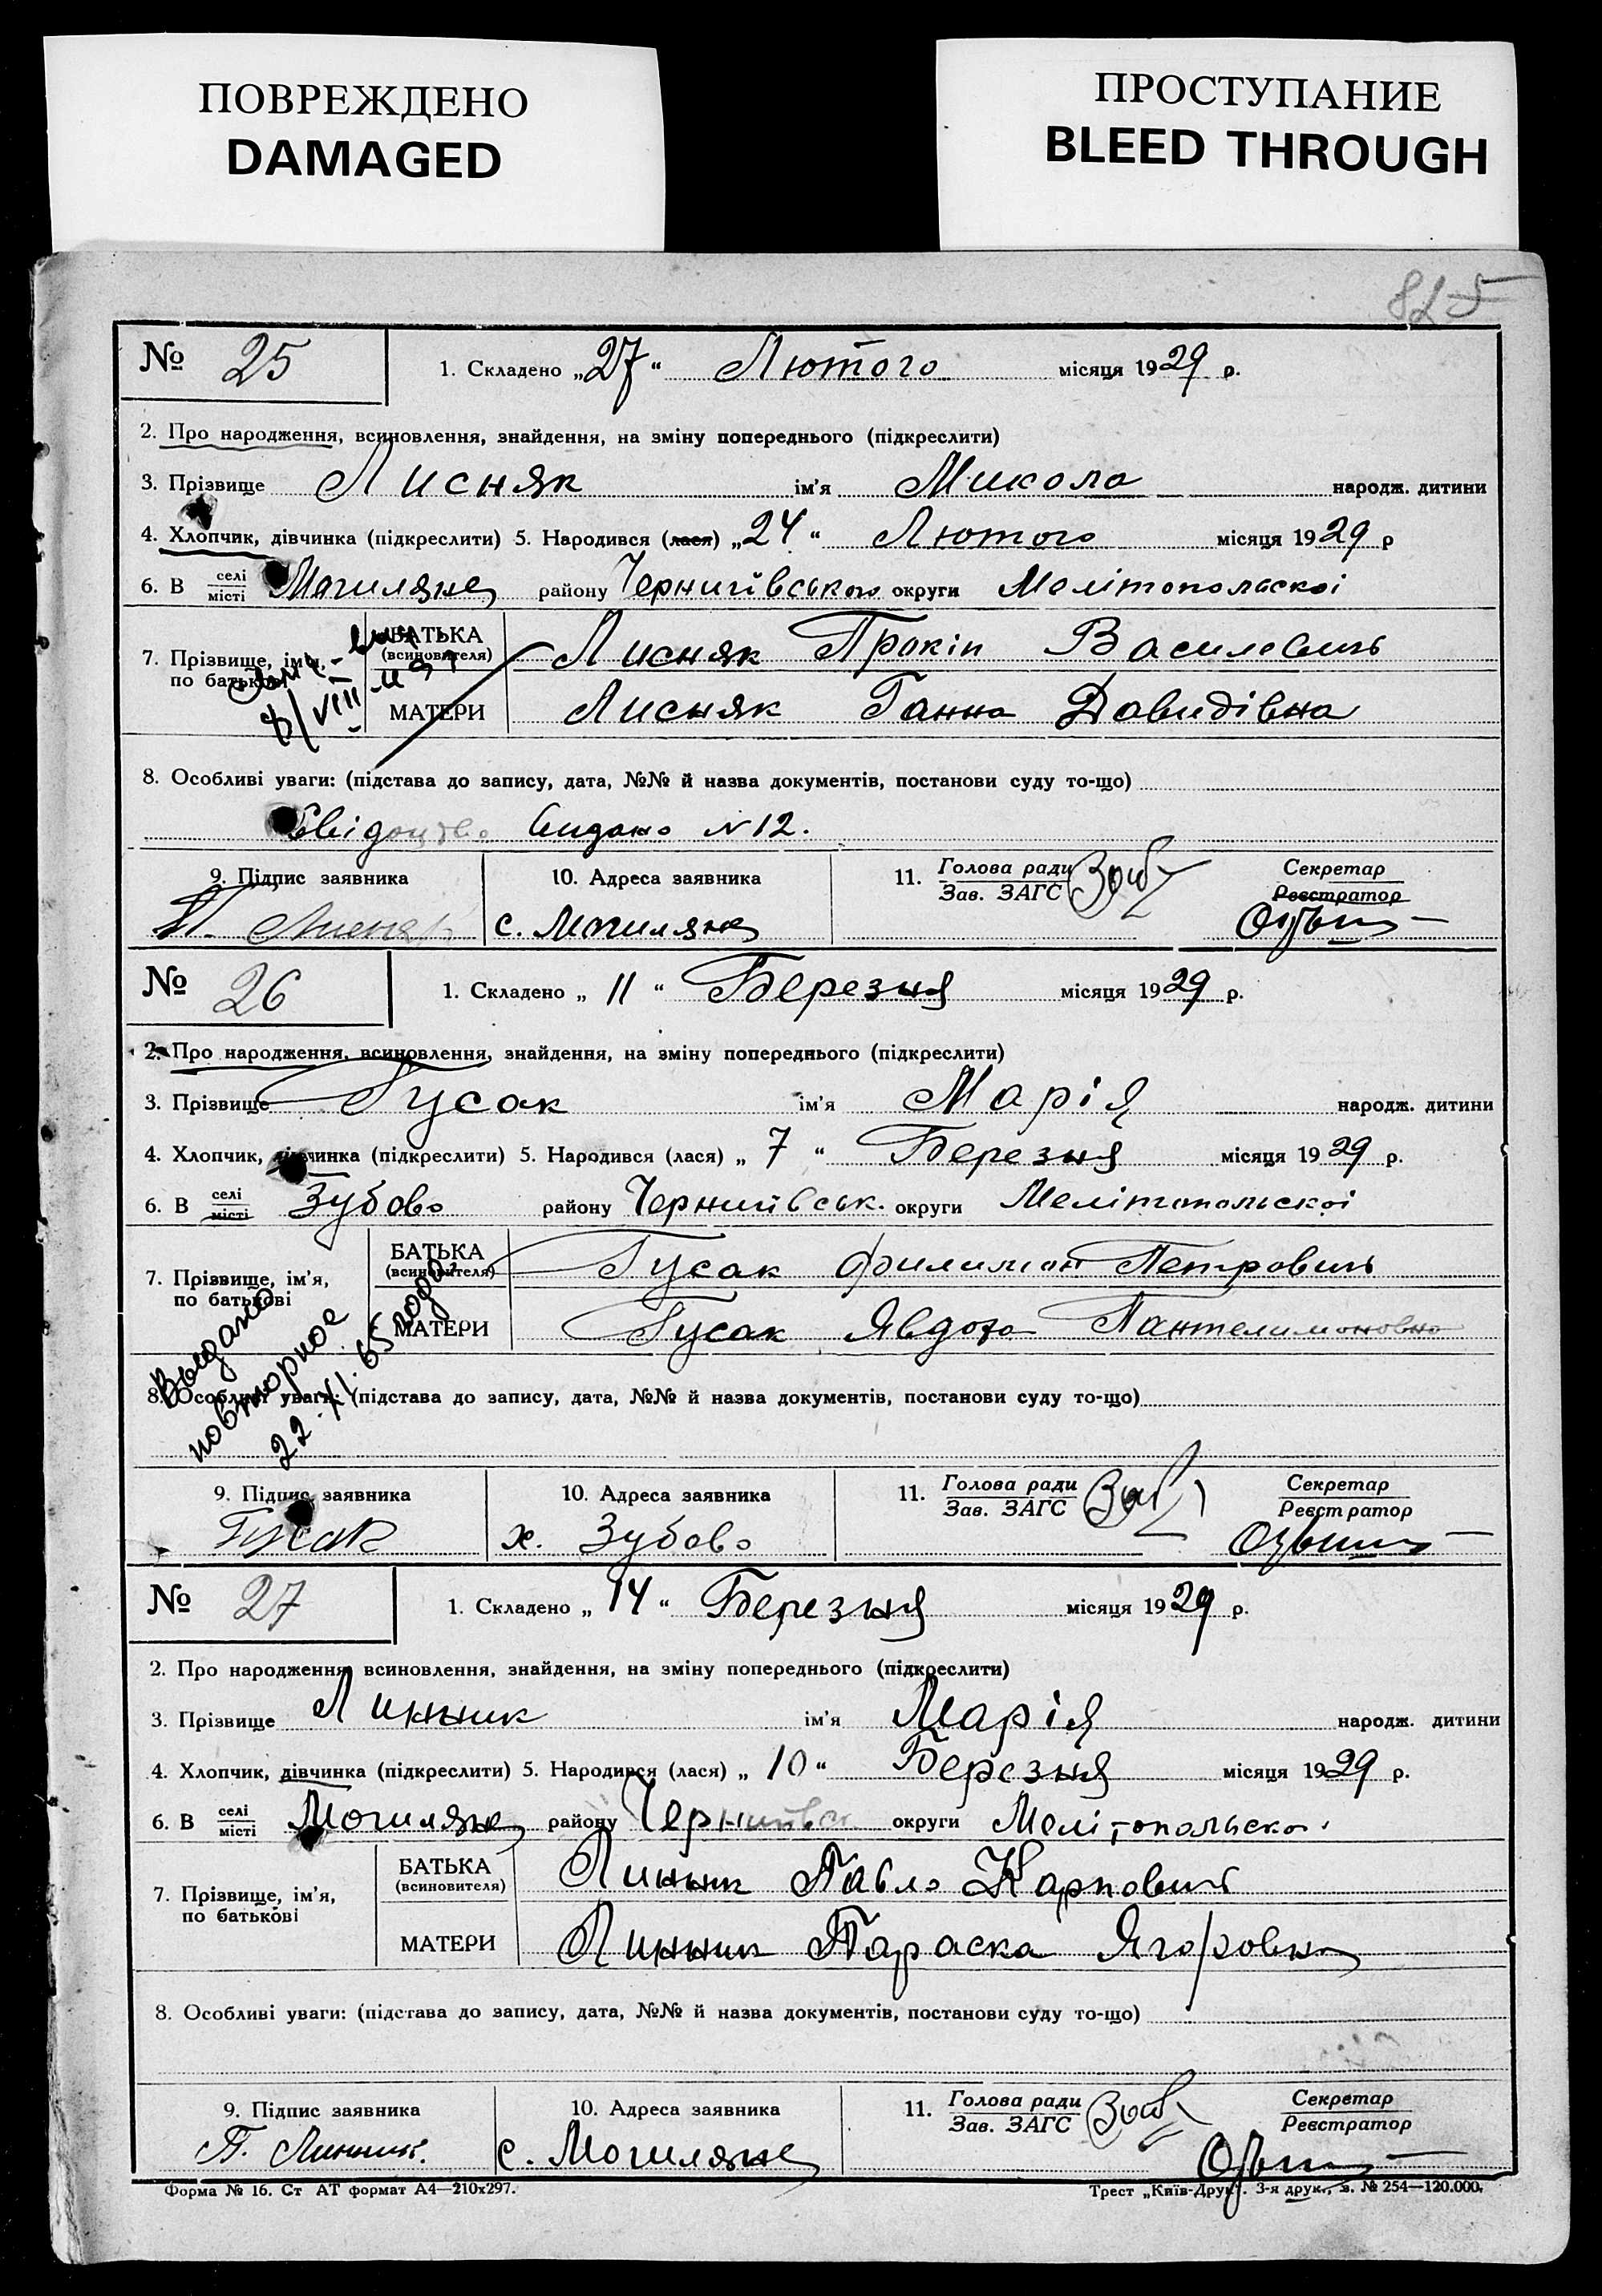 ПОВРЕЖДЕНО
DAMAGED
ПРОСТУПАНИЕ
BLEED THROUGH
825
№ 25 1. Складено „27“ Лютого місяця 1929 р.
2. Про народження, всиновлення, знайдення, на зміну попереднього (підкреслити)
3. Прізвище Лисняк ім'я Микола народж. дитини
4. Хлопчик, дівчинка (підкреслити) 5. Народився (лася) „24“ Лютого місяця 1929 р
6. В селі місті Могиляне району Чернигівського округи Мелітопольскоі
7. Прізвище, ім'я, по батькові
БАТЬКА (всиновителя) Лисняк Прокіп Василевичь
МАТЕРИ Лисняк Ганна Давидівна
8/VIII
8. Особливі уваги: (підстава до запису, дата, №№ й назва документів, постанови суду то-що)
Свідоцтво видано N 12.
9. Підпис заявника 10. Адреса заявника 11. Голова ради Зав. ЗАГС Секретар Реєстратор
с. Могиляне
№ 26 1. Складено „11“ Березня місяця 1929 р.
2. Про народження, всиновлення, знайдення, на зміну попереднього (підкреслити)
3. Прізвище Гусак ім'я Марія народж. дитини
4. Хлопчик, дівчинка (підкреслити) 5. Народився (лася) „7“ Березня місяця 1929 р.
6. В селі місті Зубово району Чернигівськ. округи Мелітопольскоі
7. Прізвище, ім'я, по батькові
БАТЬКА (всиновителя) Гусак Филимон Петровичь
МАТЕРИ Гусак Явдоха Пантелимоновна
Выдано
повторное
22.XI.65 года
8. Особливі уваги: (підстава до запису, дата, №№ й назва документів, постанови суду то-що)
9. Підпис заявника 10. Адреса заявника 11. Голова ради Зав. ЗАГС Секретар Реєстратор
Гусак х. Зубово
№ 27 1. Складено „14“ Березня місяця 1929 р.
2. Про народження, всиновлення, знайдення, на зміну попереднього (підкреслити)
3. Прізвище Линник ім'я Марія народж. дитини
4. Хлопчик, дівчинка (підкреслити) 5. Народився (лася) „10“ Березня місяця 1929 р.
6. В селі місті Могиляне району Чернигівськ округи Мелітопольскоі
7. Прізвище, ім'я, по батькові
БАТЬКА (всиновителя) Линник Павло Карпович
МАТЕРИ Линник Параска Ягоровна
8. Особливі уваги: (підстава до запису, дата, №№ й назва документів, постанови суду то-що)
9. Підпис заявника 10. Адреса заявника 11. Голова ради Зав. ЗАГС Секретар Реєстратор
П. Линник. с. Могиляне
Форма № 16. Ст АТ формат А4—210х297. Трест „Київ-Друк“. 3-я друк., з. № 254—120.000.